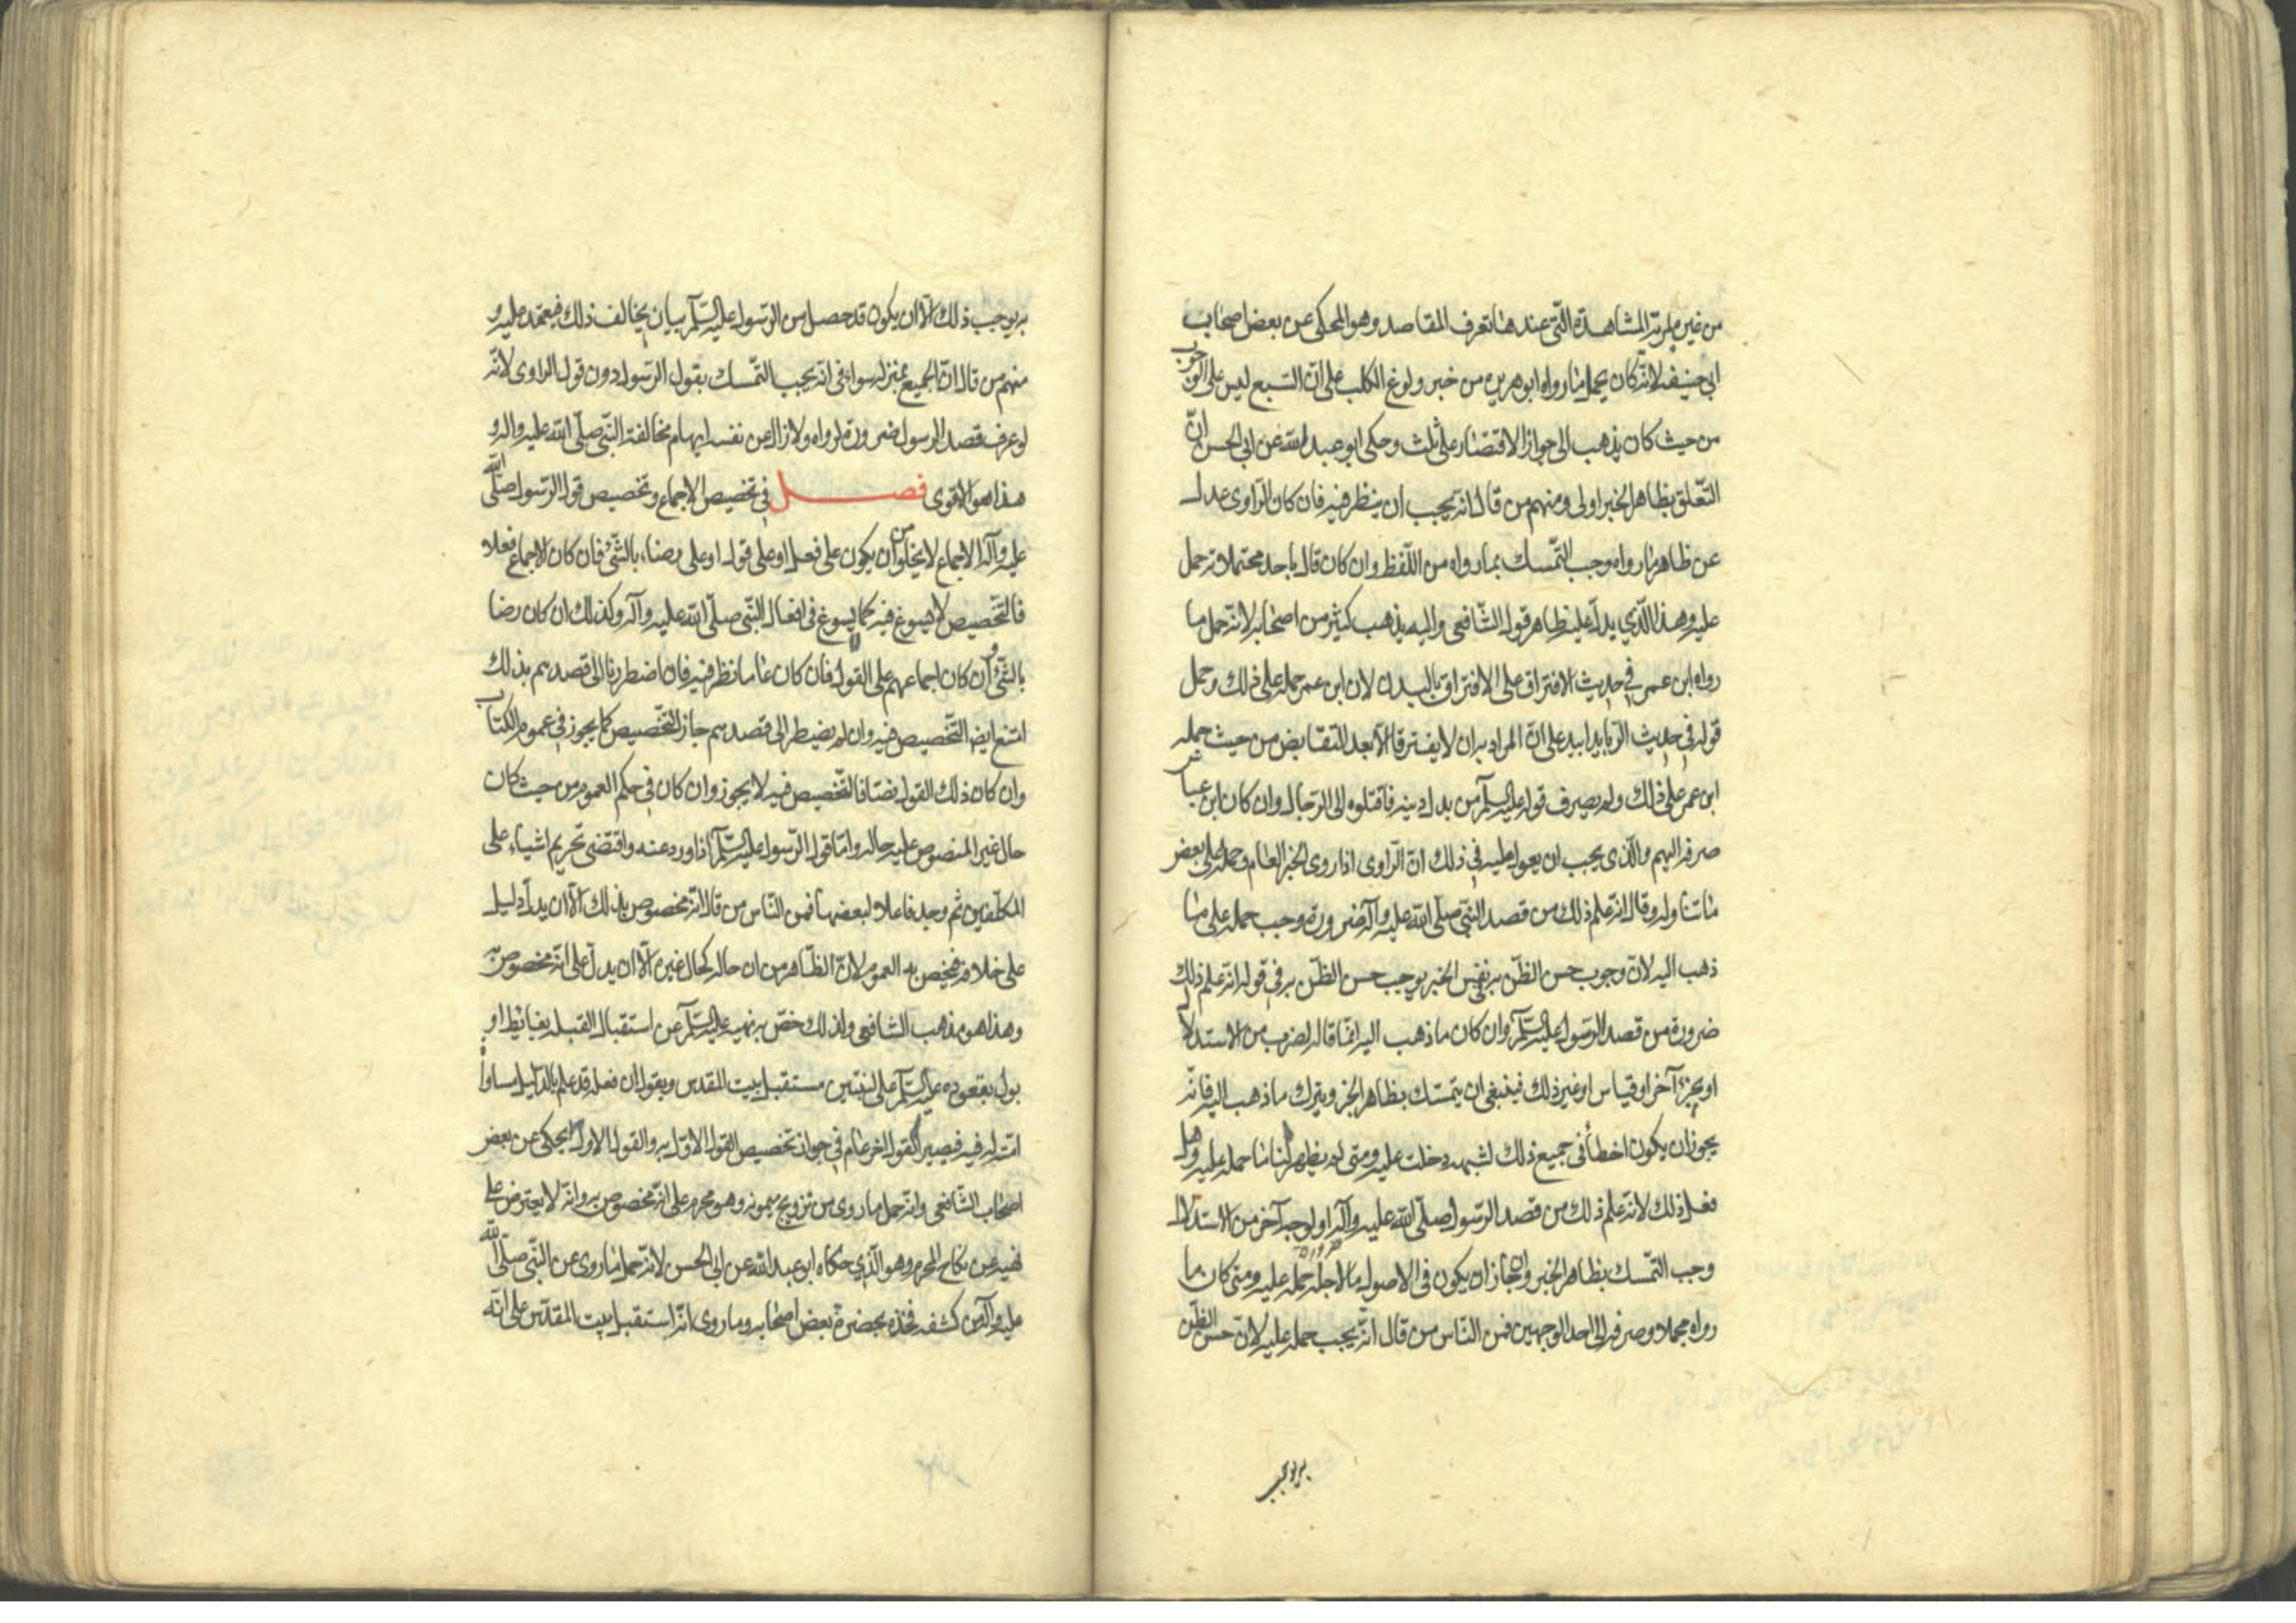 من غير مزية المشاهدة التي عندها تعرف المقاصد وهو المحكى عن بعض اصحاب
ابي حنيفه لانه كان يحمل ما رواه ابو هريره من خبر ولوغ الكلب على ان السبع ليس على الوجوب
من حيث كان يذهب الى جواز الاقتصار على ثلث وحكى ابو عبد الله عن ابي الحسن ان
التعلق بظاهر الخبر اولى ومنهم من قال انه يجب ان ينظر فيه فان كان الراوى عدل
عن ظاهر ما رواه وجب التمسك بما رواه من اللفظ وان كان قال باحد محتملاته حمل
عليه وهذا الذي يدل عليه ظاهر قول الشافعى واليه يذهب كثير من اصحابه لانه حمل ما
رواه ابن عمر في حديث الافتراق على الافتراق بالبدن لان ابن عمر حمله على ذلك وحمل
قوله في حديث الربا يدا بيد على ان المراد به ان لا يفترقا الا بعد التقابض من حيث حمله
ابن عمر على ذلك ولم يصرف قوله عليه السلم من بدل دينه فاقتلوه الى الرجال وان كان ابن عباس
صرفه اليهم والذى يجب ان يعول عليه في ذلك ان الراوى اذا روى الخبر العام وحمله على بعض
ما تناوله وقال انه علم ذلك من قصد النبي صلى الله عليه وآله ضرورة وجب حمله على ما
ذهب اليه لان وجوب حسن الظن به في نفس الخبر يوجب حسن الظن به في قوله انه علم ذلك
ضرورة من قصد الرسول عليه السلم وان كان ما ذهب اليه انما قاله لضرب من الاستدلال
او بخبر آخر او قياس او غير ذلك فينبغي ان يتمسك بظاهر الخبر ويترك ما ذهب اليه فانه
يجوز ان يكون اخطأ في جميع ذلك لشبهه دخلت عليه ومتى لم يظهر لنا ما حمله عليه وهل
فعل ذلك لانه علم ذلك من قصد الرسول صلى الله عليه وآله ضرورة او لوجه آخر من الاستدلال
وجب التمسك بظاهر الخبر وان جاز ان يكون في الاصول ما لاجله حمله عليه ومتى كان ما
رواه مجملا وصرفه الى احد الوجهين فمن الناس من قال انه يجب حمله عليه لان حسن الظن
به يوجب
به يوجب ذلك الا ان يكون قد حصل من الرسول عليه السلم بيان يخالف ذلك فيعتمد عليه و
منهم من قال ان الجميع بمنزله سواء في انه يجب التمسك بقول الرسول دون قول الراوى لانه
لو عرف قصد الرسول ضرورة لرواه ولازال عن نفسه ايهام مخالفة النبي صلى الله عليه وآله و
هذا هو الاقوى فصل في تخصيص الاجماع وتخصيص قول الرسول صلى الله
عليه وآله الاجماع لا يخلو من ان يكون على فعل او على قول او على رضاء بالشئ فان كان الاجماع فعلا
فالتخصيص لا يسوغ فيه كما لا يسوغ في افعال النبي صلى الله عليه وآله وكذلك ان كان رضا
بالشئ وان كان اجماعهم على القول فان كان عاما نظر فيه فان اضطررنا الى قصدهم بذلك
امتنع ايضا التخصيص فيه وان لم يضطر الى قصدهم جاز التخصيص كما يجوز في عموم الكتاب
وان كان ذلك القول نصا فالتخصيص فيه لا يجوز وان كان في حكم العموم من حيث كان
حال غير المنصوص عليه حاله واما قول الرسول عليه السلم اذا ورد عنه واقتضى تحريم اشياء على
المكلفين ثم وجد فاعلا لبعضها فمن الناس من قال انه مخصوص بذلك الا ان يدل دليل
على خلافه فيخص به العموم لان الظاهر من ان حاله كحال غيره الا ان يدل على انه مخصوص به
وهذا هو مذهب الشافعى ولذلك خص به نهيه عليه السلم عن استقبال القبله بغائط او
بول بقعوده عليه السلم على لبنتين مستقبل بيت المقدس ويقول ان فعله قد علم بالدليل مساواة
امته له فيه فيصير كقول آخر عام في جواز تخصيص القول الاول به والقول الاول يحكى عن بعض
اصحاب الشافعى وانه حمل ما روى من تزويج ميمونه وهو محرم على انه مخصوص به وانه لا يعترض على
نهيه عن نكاح المحرم وهو الذي حكاه ابو عبد الله عن ابي الحسن لانه حمل ما روى عن النبي صلى الله
عليه وآله من كشفه فخذه بحضرة بعض اصحابه وما روى انه استقبل بيت المقدس على انه